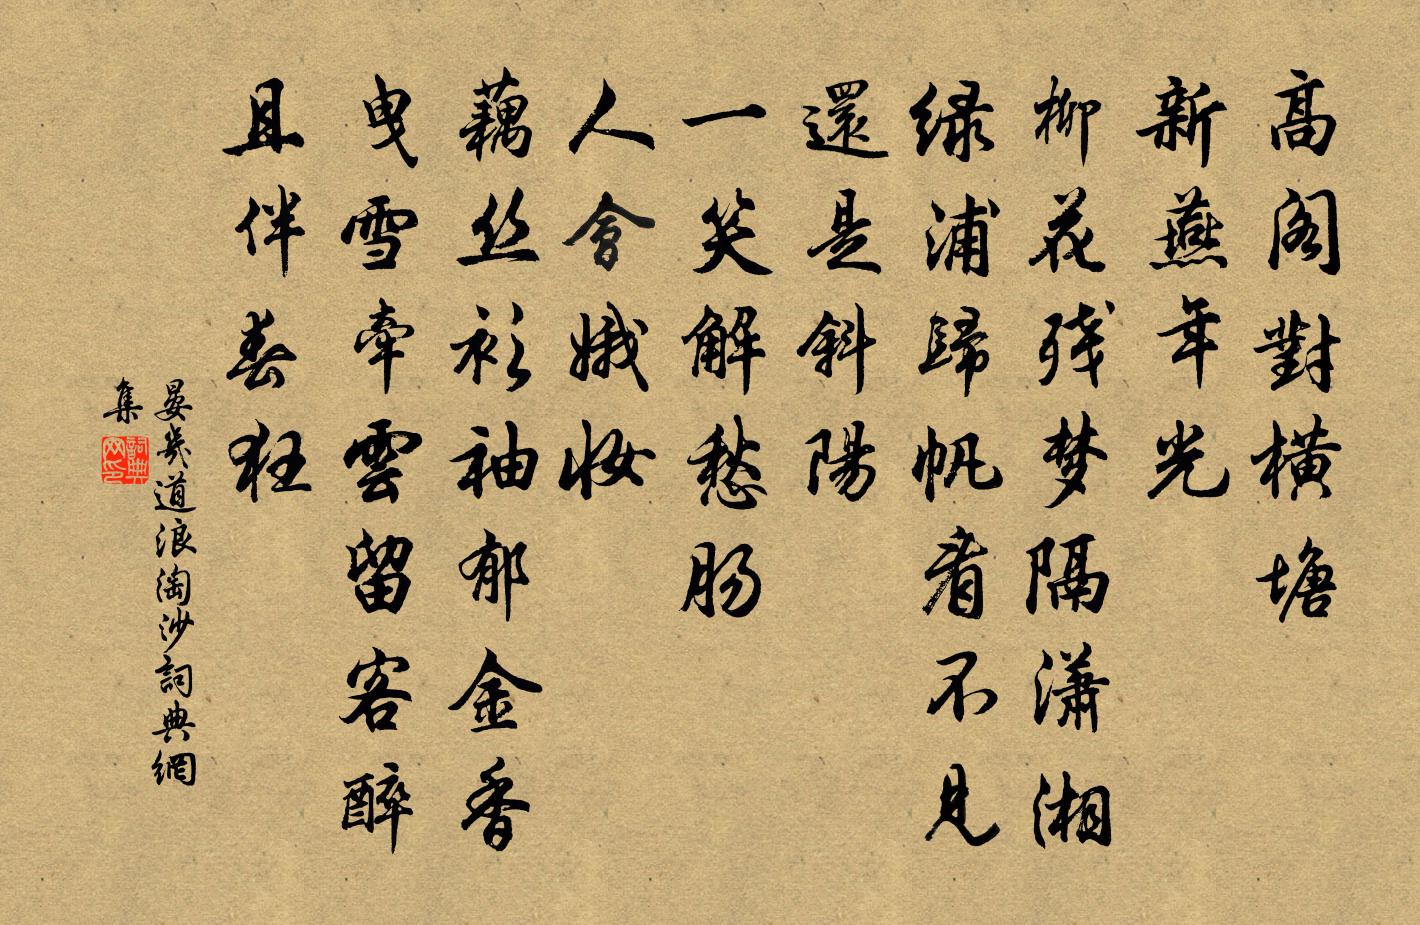 高阁對橫塘
新燕年光
柳花残梦隔潇湘
绿浦歸帆看不見
還是斜陽
一笑解愁肠
人會娥妝
藕丝衫袖郁金香
曳雪牽雲留客醉
且伴春狂
晏幾道浪淘沙詞典網
集
詞典网印